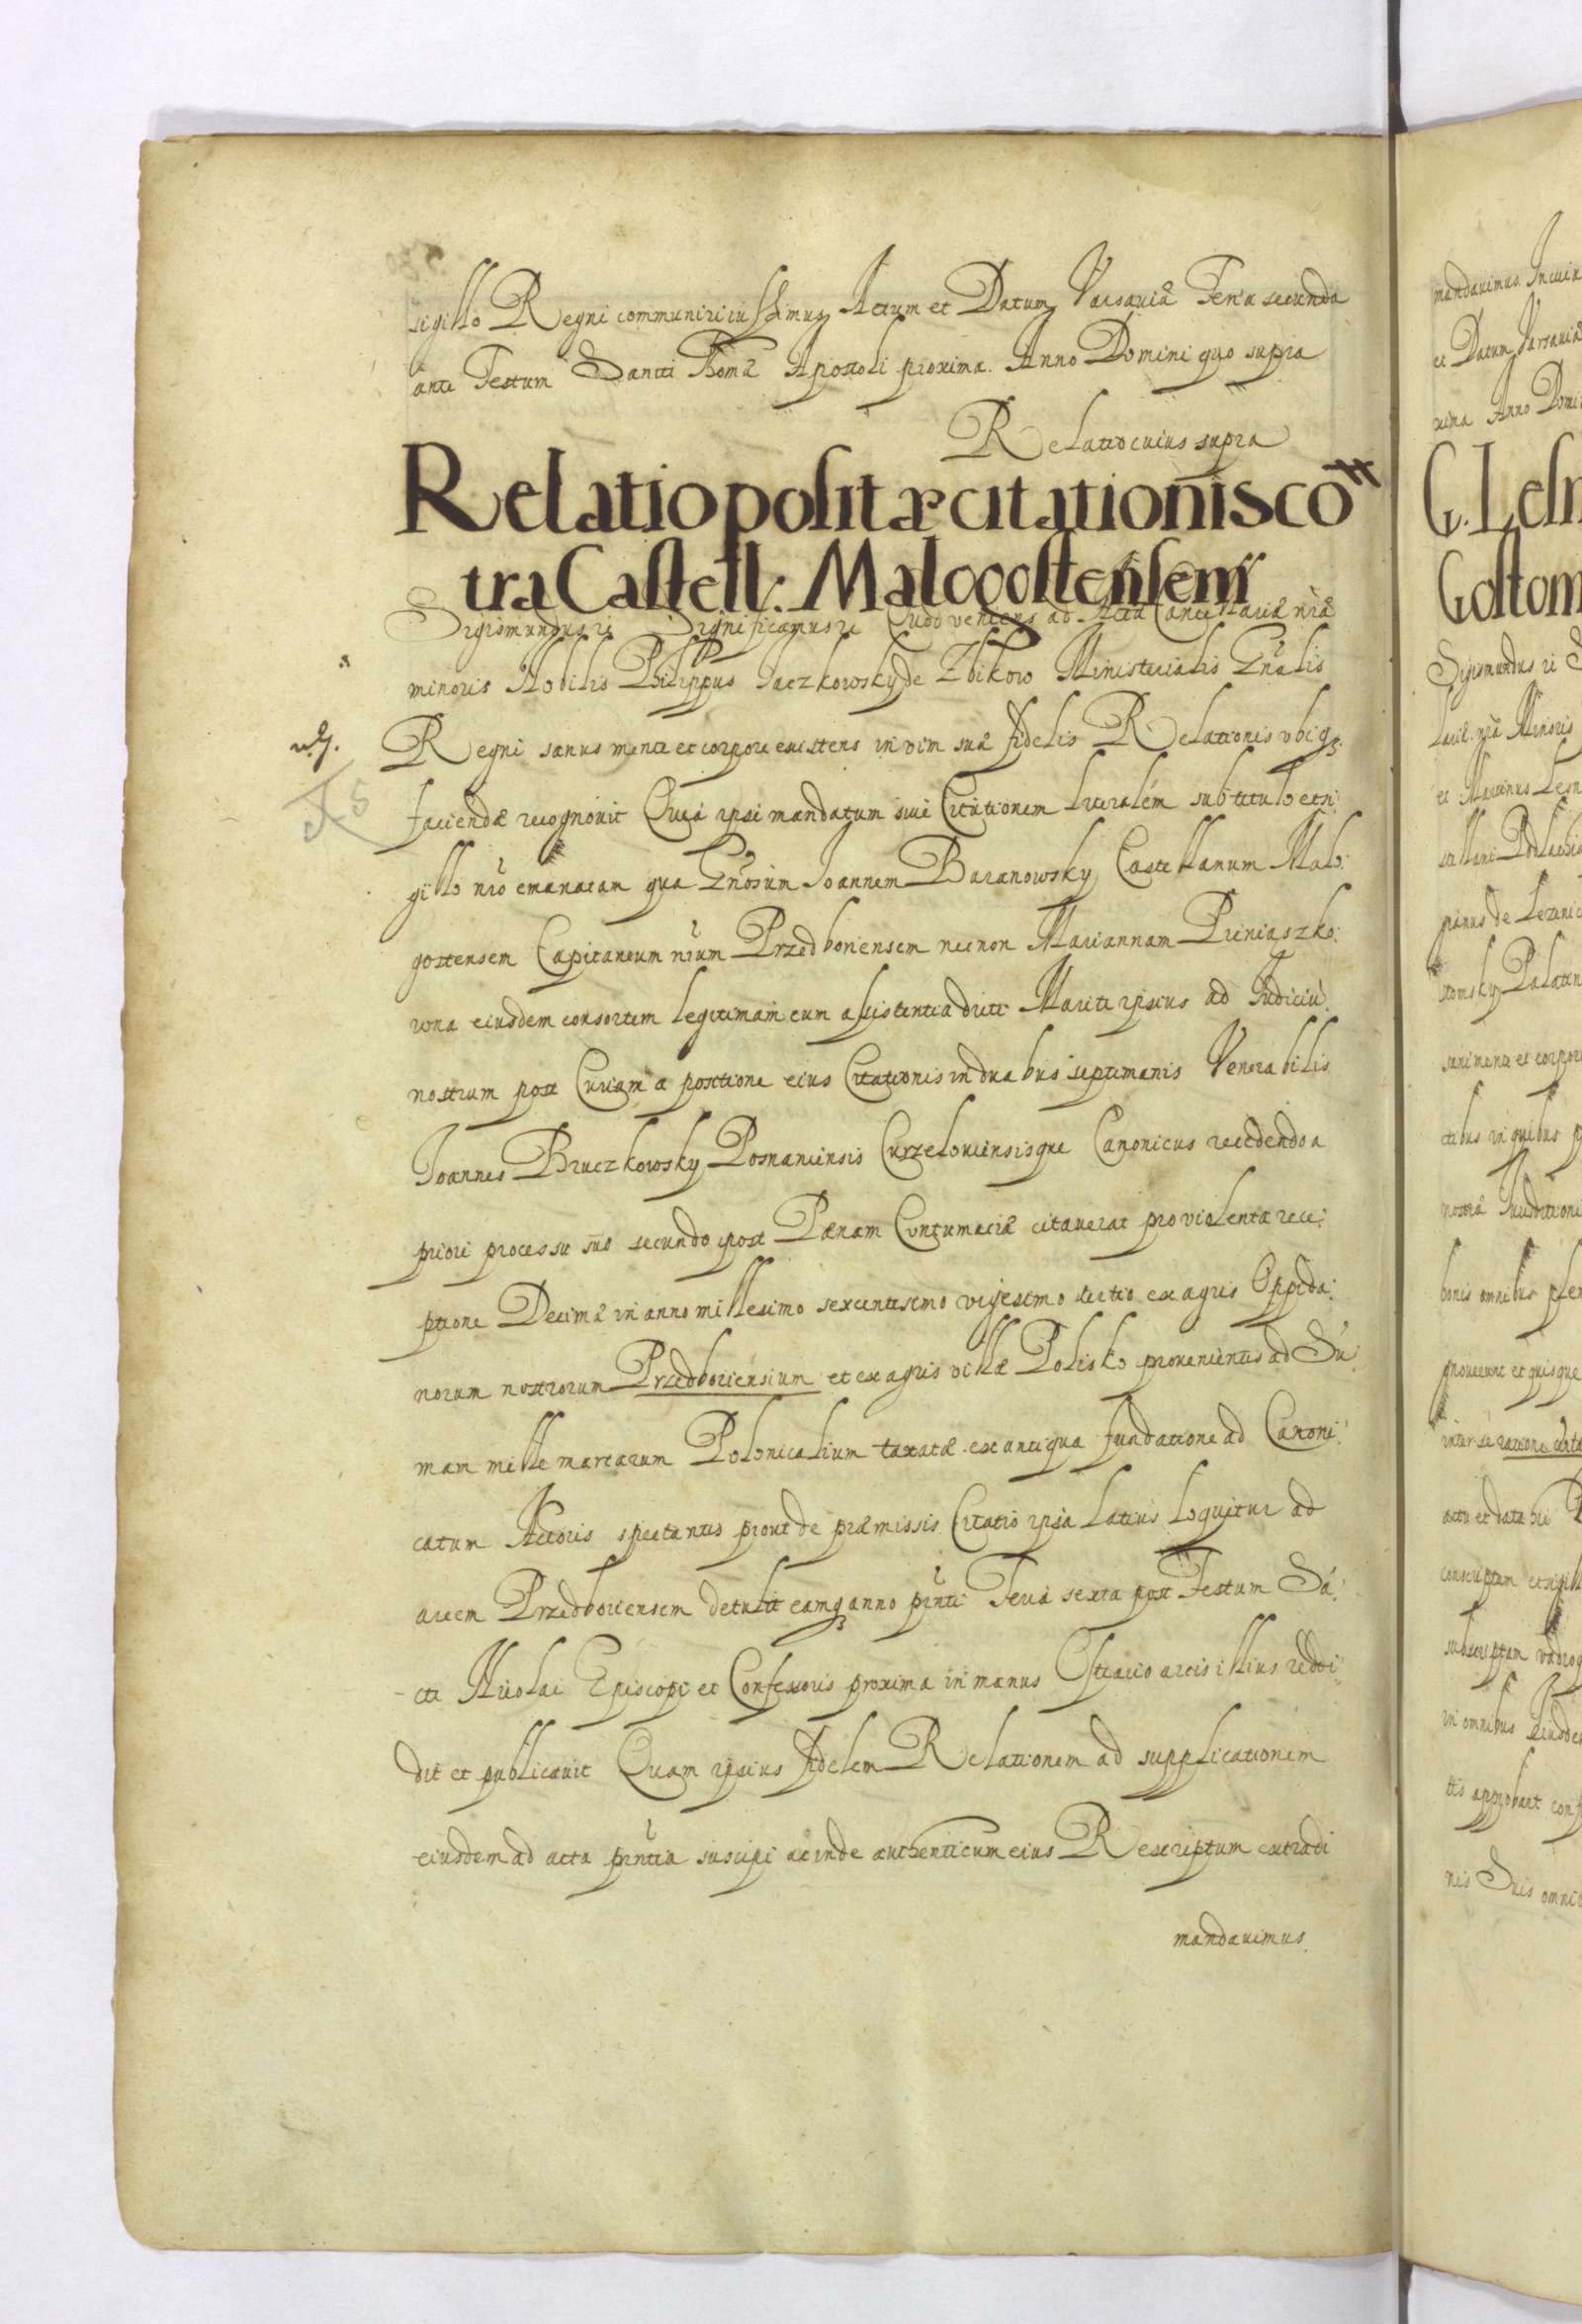 sigillo Regni communiri iussimus Actum et Datum Varsaviæ Feria secunda
ante Festum Sancti Thomæ Apostoli proxima. Anno Domini quo supra
Relatio cuius supra
Relatio positæ citationis cō
tra Castell: Malogostensem
Sigismundus ii Significamus ii Quod veniens ad Acta Cancellariæ nr̃æ
minoris Nobilis Philippus Jaczkowsky de Zbikow Ministerialis Gn̄alis
Regni sanus mente et corpore existens in vim suæ fidelis Relationis ubiq3
faciendæ recognovit Quia ipse mandatum sive Citationem literalem sub titulo et si:
gillo nr̃o emanatam qua Gn̄osum Joannem Baranowsky Castellanum Malo:
gostensem Capitaneum nr̃um Przedboriensem necnon Mariannam Pieniaszko:
wna eiusdem consortem legitimam cum assistentia dicti Mariti ipsius ad Judiciū
nostrum post Curiam a positione eius Citationis in duabus septimanis Venerabilis
Joannes Bruczkowsky Posnaniensis Curzeloviensisque Canonicus recedendo a
priori processu suo secundo post Pænam Contumaciæ citaverat pro violenta rece:
ptione Decimæ in anno millesimo sexcentesimo vigesimo tertio ex agris Oppida:
norum nostrorum Przedboriensium et ex agris villæ Policzko provenientis ad Su:
mam mille marcarum Polonicalium taxatæ ex antiqua fundatione ad Canoni:
catum Actoris spectantis prout de præmissis Citatio ipsa latius loquitur ad
arcem Przedboriensem detulit eamq3 anno pr̃nti Feria sexta post Festum Sā:
cti Nicolai Episcopi et Confessoris proxima in manus Ostiario arcis illius reddi:
dit et publicavit Quam ipsius fidelem Relationem ad supplicationem
eiusdem ad acta pr̃ntia suscipi ac inde authenticum eius Rescriptum extradi
mandavimus.
mandavimus In cuius
et Datum Varsaviæ
xima Anno Domi
G. Lesn
Gostom
Sigismundus ii S
lariæ nr̃æ Minoris
et Martinus Lesn
stellani Podlachiæ